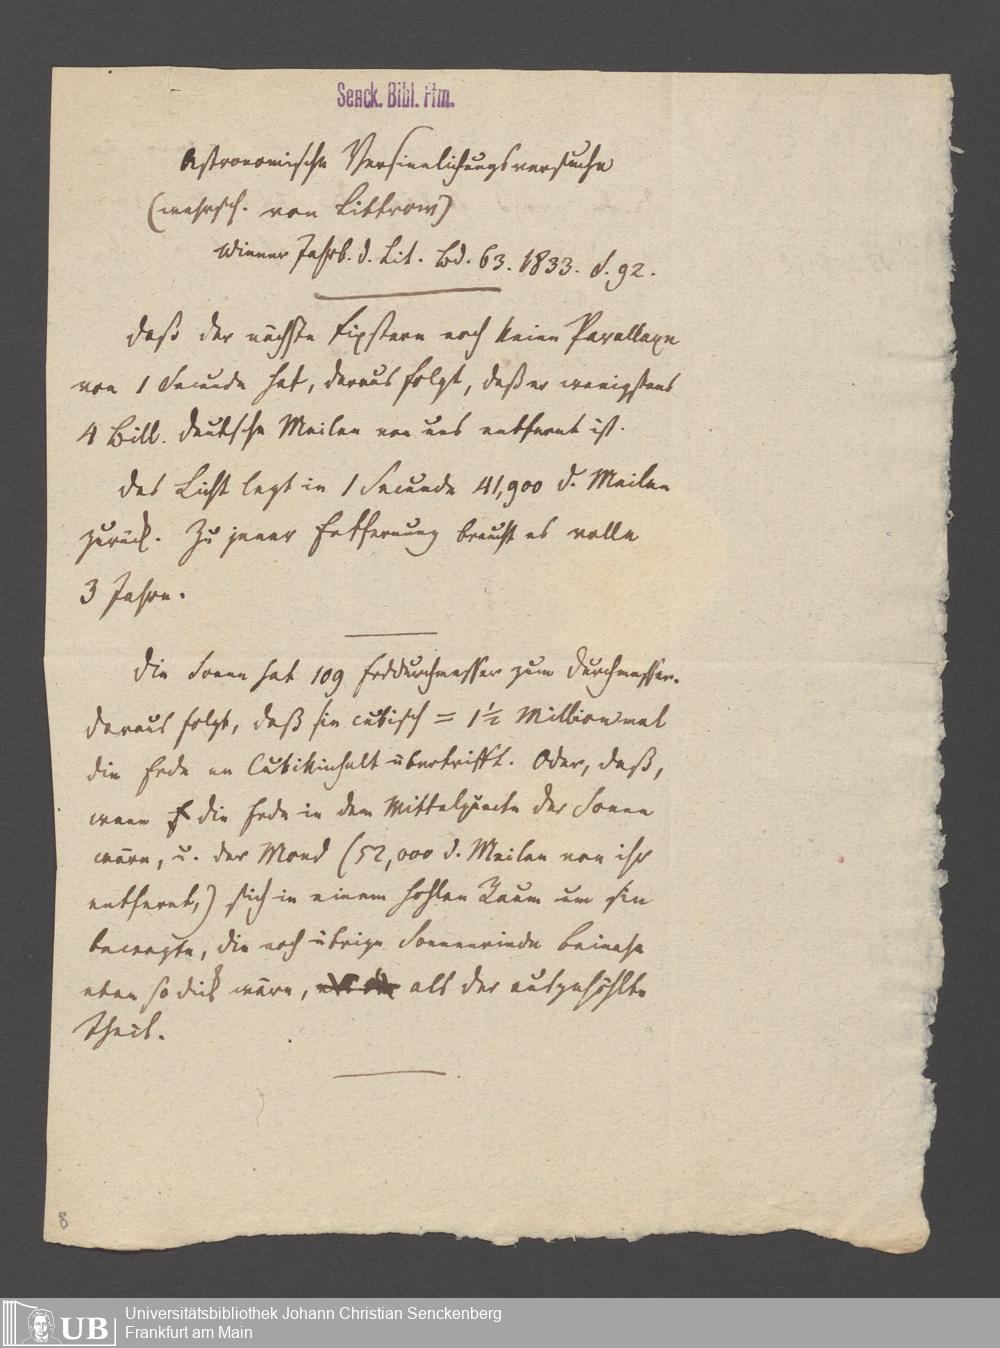 Senck. Bibl. Ffm.
Astronomische Versinnlichungsversuche
(wahrsch. von Littrow)
Wiener Jahrb. d. Lit. Bd. 63. 1833. S. 92.
Daß der nächste Fixstern noch keine Parallaxe
von 1 Secunde hat, daraus folgt, daß er wenigstens
4 Bill. deutsche Meilen von uns entfernt ist.
Das Licht legt in 1 Secunde 41,900 d. Meilen
zurück. Zu jener Entfernung braucht es volle
3 Jahre.
Die Sonne hat 109 Erddurchmesser zum Durchmesser.
Daraus folgt, daß sie cubisch = 1½ Millionmal
die Erde an Cubikinhalt übertrifft. Oder, daß,
wenn die Erde in dem Mittelpuncte der Sonne
wäre, u. der Mond (52,000 d. Meilen von ihr
entfernt,) sich in einem hohlen Raum um sie
bewegte, die noch übrige Sonnenrinde beinahe
eben so dick wäre, als der ausgehöhlte
Theil.
8
UB
Universitätsbibliothek Johann Christian Senckenberg
Frankfurt am Main